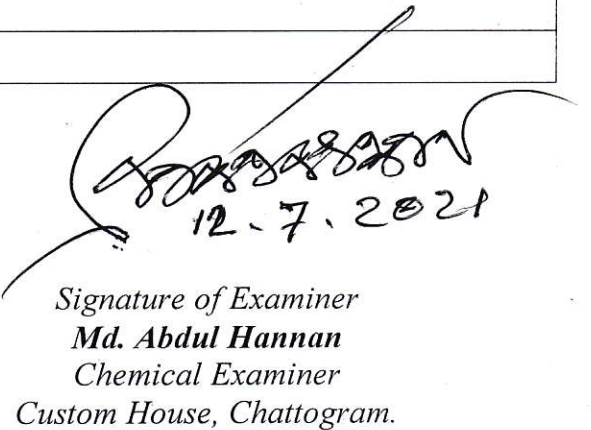 12.7.2021
Signature of Examiner
Md. Abdul Hannan
Chemical Examiner
Custom House, Chattogram.